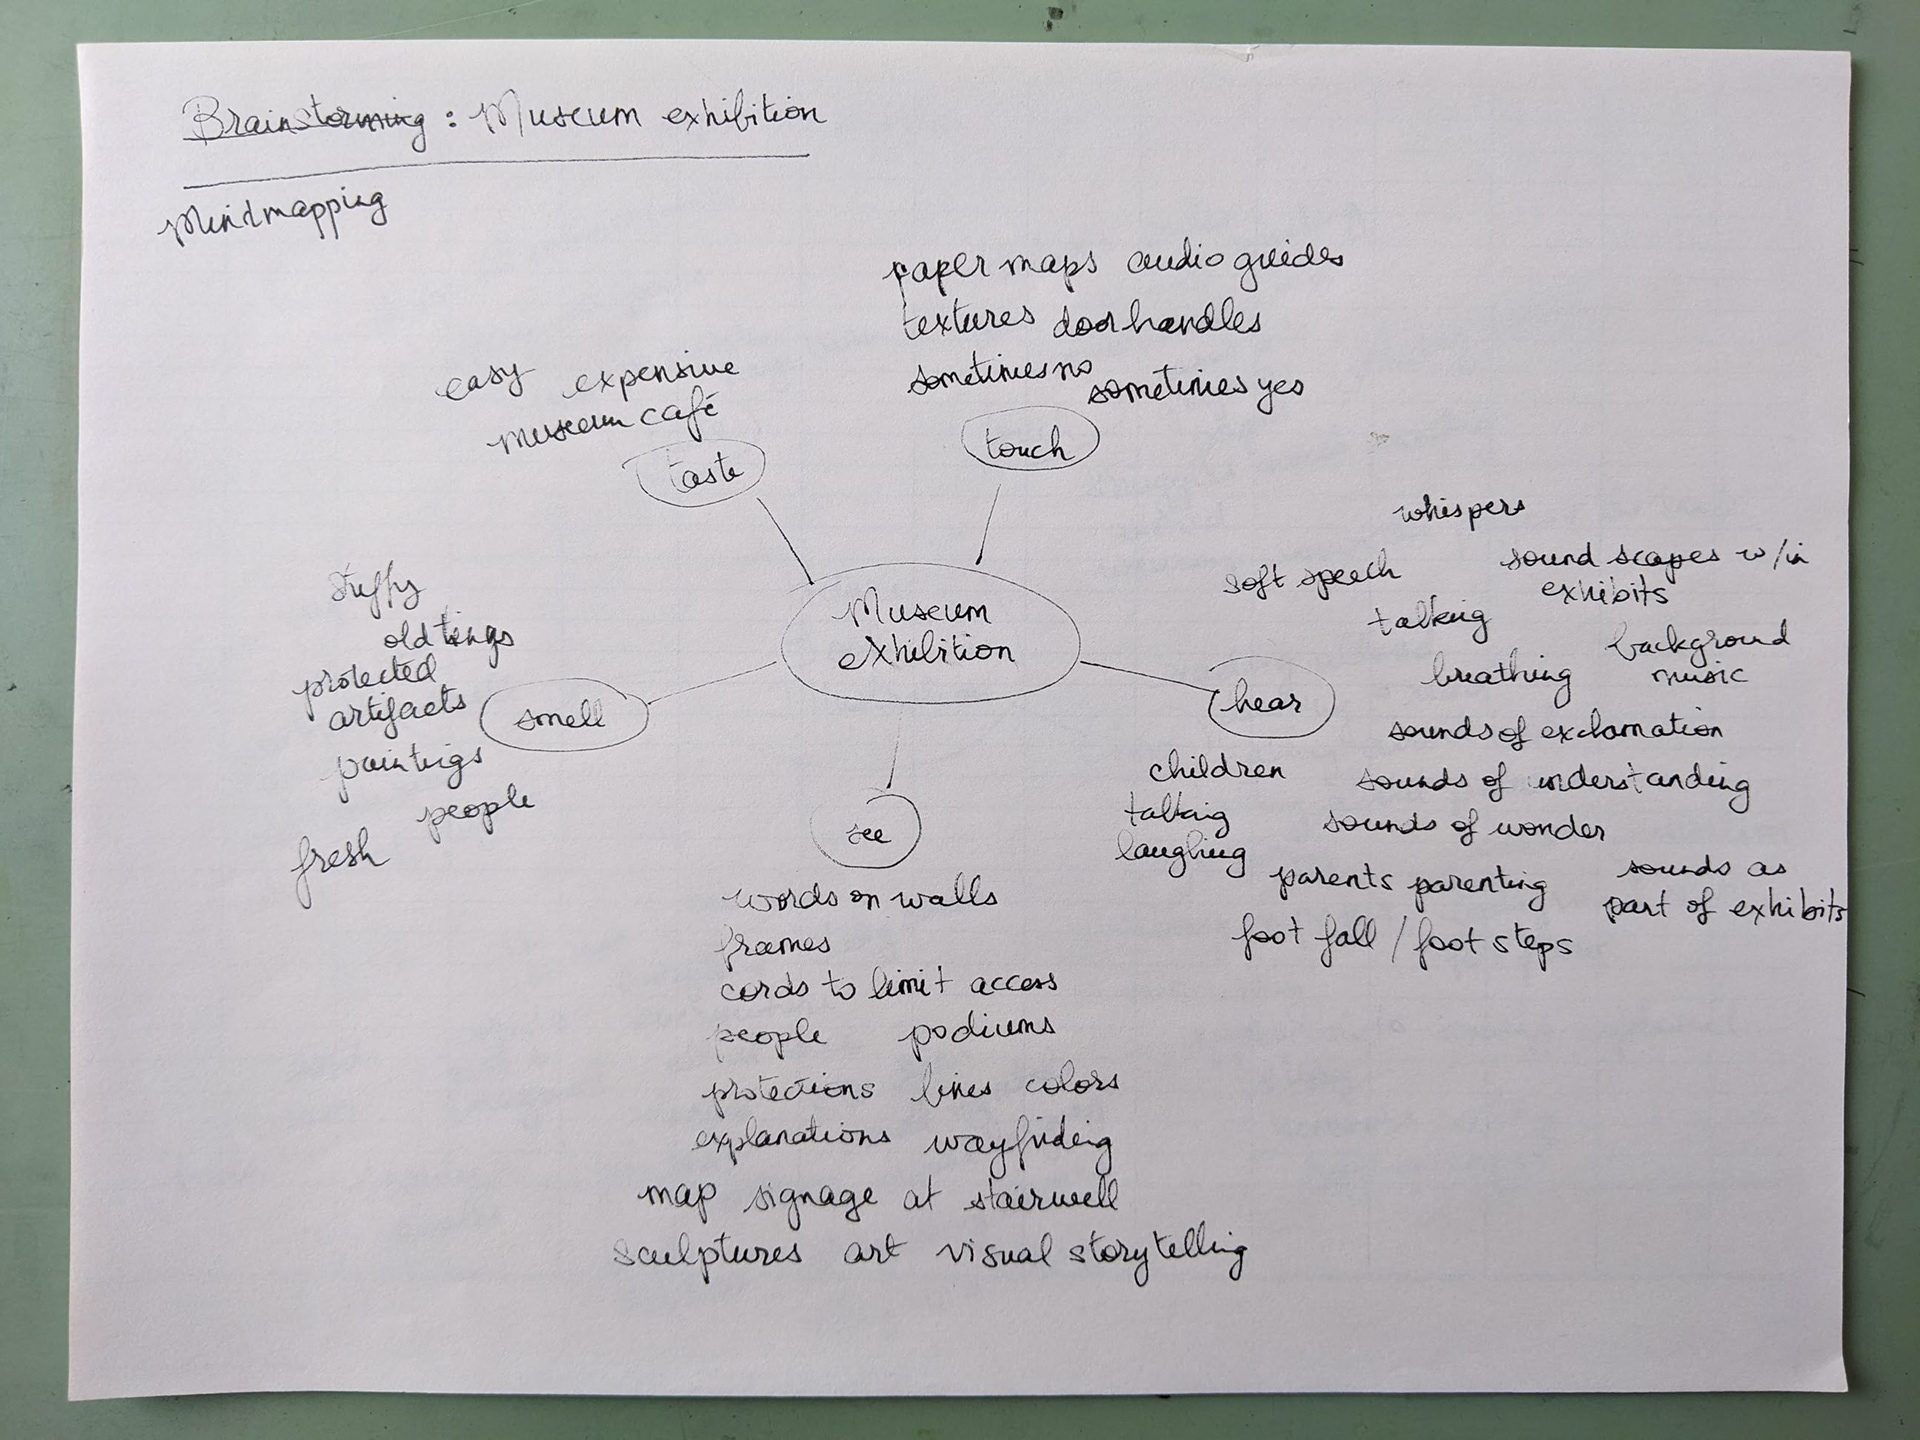 Brainstorming : Museum exhibition
Mindmapping
paper maps audio guides
textures door handles
sometimes no sometimes yes
touch
easy expensive
museum café
taste
Museum
exhibition
stuffy
old tings
protected
artifacts
paintings
people
fresh
smell
whispers
soft speech
sound scapes w/in
exhibits
talking
background
music
breathing
hear
sounds of exclamation
sounds of understanding
sounds of wonder
children
talking
laughing
parents parenting
sounds as
part of exhibits
foot fall / foot steps
see
words on walls
frames
cords to limit access
people podiums
protections lines colors
explanations wayfinding
map signage at stairwell
sculptures art visual storytelling